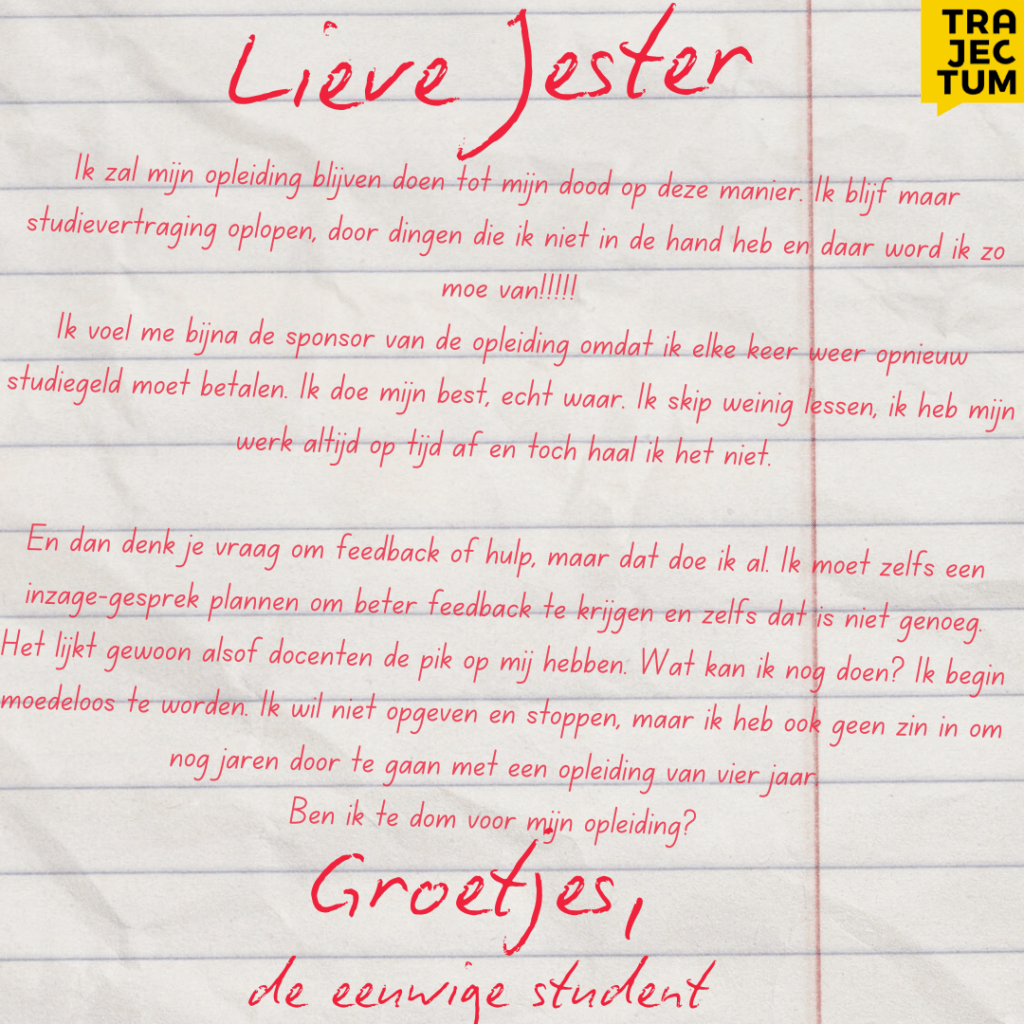 Lieve Jester
TRA
JEC
TUM
Ik zal mijn opleiding blijven doen tot mijn dood op deze manier. Ik blijf maar
studievertraging oplopen, door dingen die ik niet in de hand heb en daar word ik zo
moe van!!!!!
Ik voel me bijna de sponsor van de opleiding omdat ik elke keer weer opnieuw
studiegeld moet betalen. Ik doe mijn best, echt waar. Ik skip weinig lessen, ik heb mijn
werk altijd op tijd af en toch haal ik het niet.
En dan denk je vraag om feedback of hulp, maar dat doe ik al. Ik moet zelfs een
inzage-gesprek plannen om beter feedback te krijgen en zelfs dat is niet genoeg.
Het lijkt gewoon alsof docenten de pik op mij hebben. Wat kan ik nog doen? Ik begin
moedeloos te worden. Ik wil niet opgeven en stoppen, maar ik heb ook geen zin in om
nog jaren door te gaan met een opleiding van vier jaar.
Ben ik te dom voor mijn opleiding?
Groetjes,
de eeuwige student